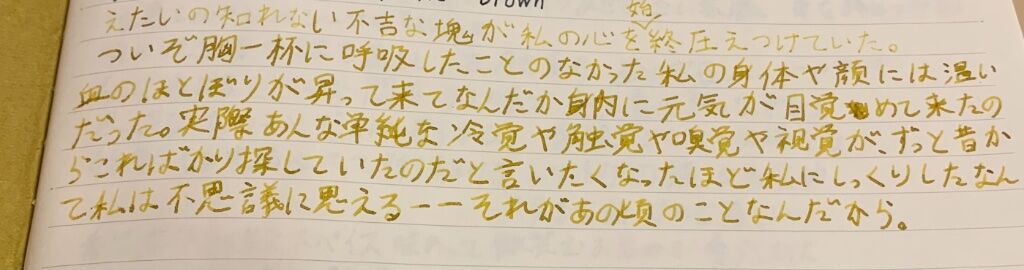 Brown
えたいの知れない不吉な塊が私の心を始終圧えつけていた。
ついぞ胸一杯に呼吸したことのなかった私の身体や顔には温い
血のほとぼりが昇って来てなんだか身内に元気が目覚めて来たの
だった。実際あんな単純な冷覚や触覚や嗅覚や視覚が、ずっと昔か
らこればかり探していたのだと言いたくなったほど私にしっくりしたなん
て私は不思議に思える——それがあの頃のことなんだから。